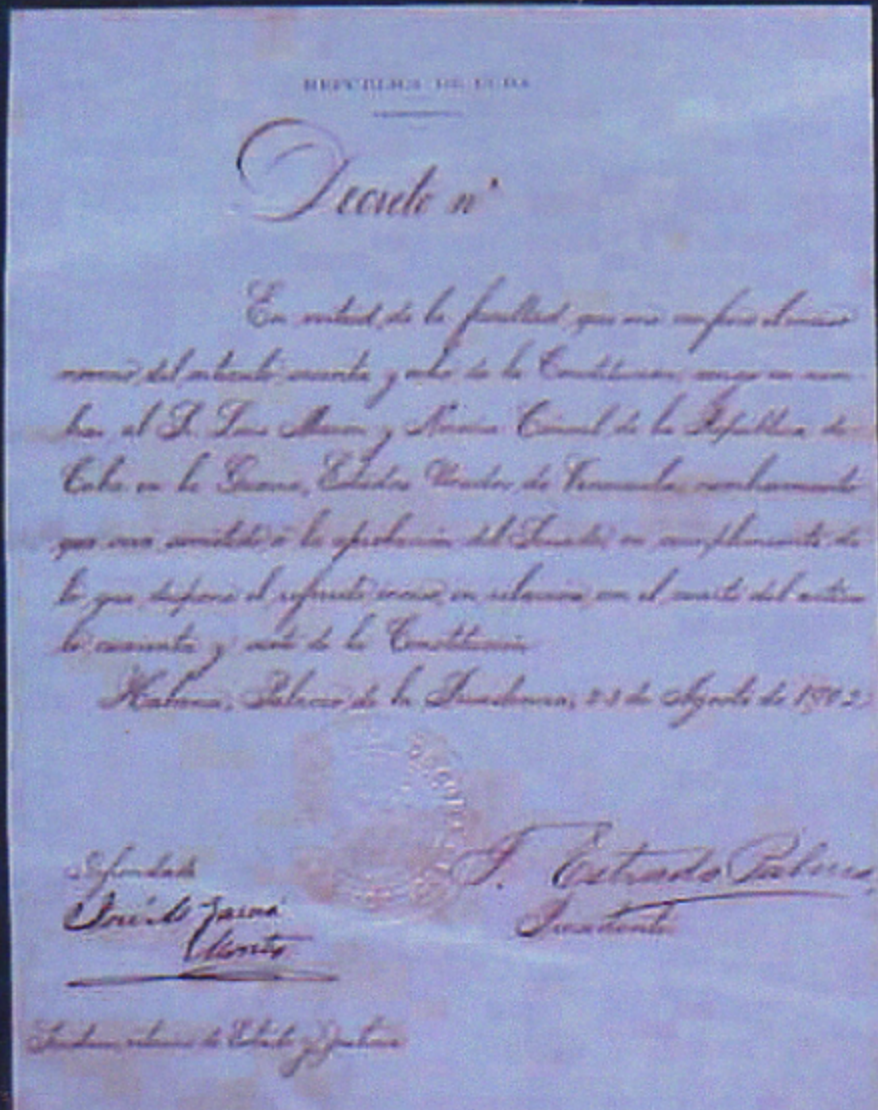 REPÚBLICA DE CUBA
Decreto nº
En virtud de la facultad que me confiere el inciso
noveno del artículo sesenta y ocho de la Constitución, vengo en nom-
brar al S. Luis y Cónsul de la República de
Cuba en la Guaira, Estados Unidos de Venezuela, nombramiento
que será sometido á la aprobación del Senado, en cumplimiento de
lo que dispone el referido inciso, en relación con el cuarto del artícu-
lo cuarenta y siete de la Constitución
Habana, Palacio de la Presidencia, 23 de Agosto de 1902
T. Estrada Palma,
Presidente
Refrendado
Secretario interino de Estado y Justicia